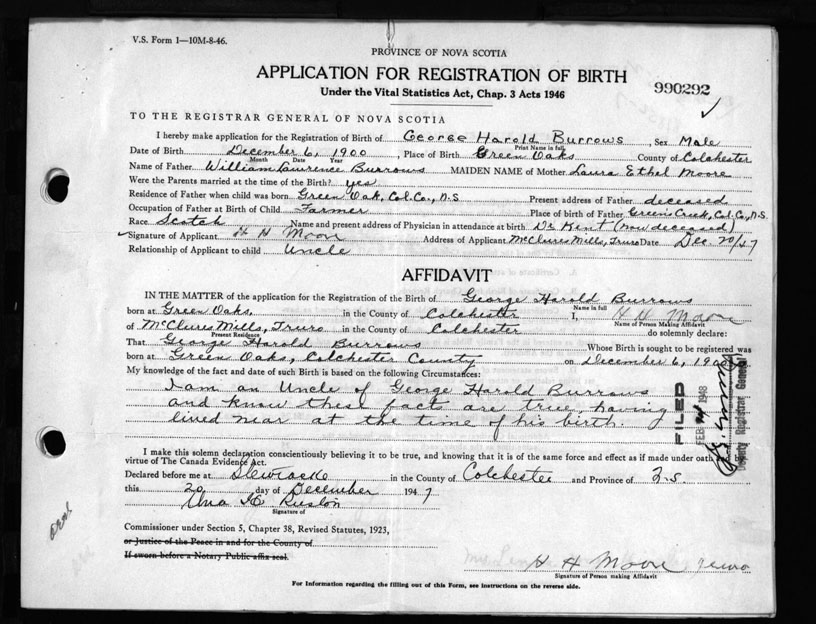 V.S. Form 1—10M-8-46.
PROVINCE OF NOVA SCOTIA
APPLICATION FOR REGISTRATION OF BIRTH
Under the Vital Statistics Act, Chap. 3 Acts 1946
990292
TO THE REGISTRAR GENERAL OF NOVA SCOTIA
I hereby make application for the Registration of Birth of George Harold Burrows, Sex Male
Print Name in full
Date of Birth December 6, 1900, Place of Birth Green Oaks County of Colchester
Month Date Year
Name of Father William Lawrence Burrows MAIDEN NAME of Mother Laura Ethel Moore
Were the Parents married at the time of the Birth? yes
Residence of Father when child was born Green Oak, Col. Co., N.S Present address of Father deceased
Occupation of Father at Birth of Child Farmer Place of birth of Father Greens Creek, Col. Co., N.S.
Race Scotch Name and present address of Physician in attendance at birth Dr Kent (now deceased)
Signature of Applicant H H Moore Address of Applicant McClures Mills, Truro Date Dec. 20/47
Relationship of Applicant to child Uncle
AFFIDAVIT
IN THE MATTER of the application for the Registration of the Birth of George Harold Burrows
Name in full
born at Green Oaks, in the County of Colchester I, H H Moore
Name of Person Making Affidavit
of McClures Mills, Truro in the County of Colchester do solemnly declare:
Present Residence
That George Harold Burrows Whose Birth is sought to be registered was
born at Green Oaks, Colchester County on December 6, 1900
My knowledge of the fact and date of such Birth is based on the following Circumstances:
I am an Uncle of George Harold Burrows
and know these facts are true, having
lived near at the time of his birth.
FILED
FEB 1948
Deputy Registrar General
I make this solemn declaration conscientiously believing it to be true, and knowing that it is of the same force and effect as if made under oath and by
virtue of The Canada Evidence Act.
Declared before me at Stewiacke in the County of Colchester and Province of N.S.
this 20 day of December 1947
Signature of
Commissioner under Section 5, Chapter 38, Revised Statutes, 1923,
or Justice of the Peace in and for the County of
If sworn before a Notary Public affix seal.
H H Moore Truro
Signature of Person making Affidavit
For Information regarding the filling out of this Form, see instructions on the reverse side.